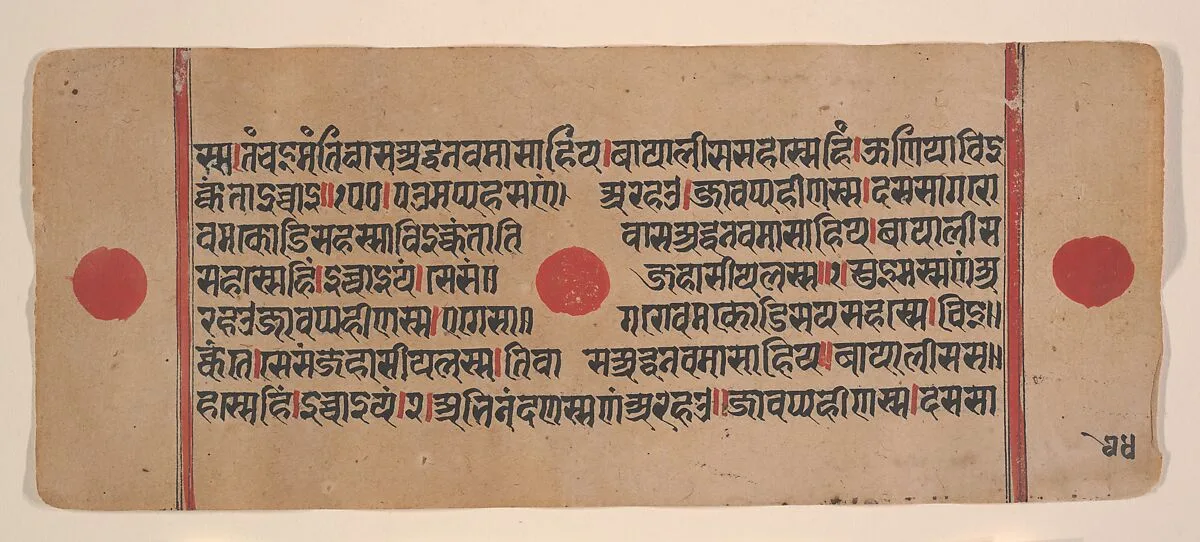 स्स।तंचइमंतिवासअद्धनवमासाहिय।बायालीससहास्सहिं।ऊणियाविइ
क्कंताइच्चाइ॥१००।पउमप्पहसणं। अरहउ।जावप्पहीणस्स।दससागरो
वमकोडिसहस्साविइक्कंताति वासअद्धनवमासाहिय।बायालीस
सहास्सहिं।इच्चाइयं।सेसं॥ जहासीयलस्स॥१।सुइमस्सणंअ
रहउजावप्पहीणस्स।एगेसा॥ गरोवमकोडिसयसहास्स।विइ॥
क्कंते।सेसंजहासीयलस्स।तिवा सअद्धनवमासाहिय॥बायालीसस॥
हास्सहिं।इच्चाइयं।२।अभिनंदणस्सणंअरहउ॥जावप्पहीणस्स।दससा